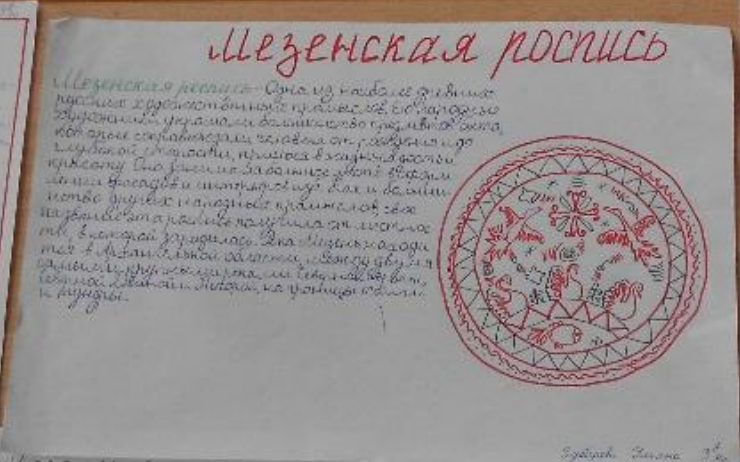 Мезенская роспись
Мезенская роспись - Одна из наиболее древних
русских художественных промыслов. Ею народные
художники украшали большинство предметов быта,
которые сопровождали человека от рождения и до
глубокой старости, принося в жизнь радость и
красоту. Она занимает большое место в оформ
лении фасадов и интерьеров изб. Как и большин
ство других народных промыслов, своё
название эта роспись получила от местнос
ти, в которой зародилась. Река Мезень находи
тся в Архангельской области, между двумя
самыми крупными реками Северной
Северной Двиной и Печорой, на границы тайги
и тундры.
Ульяна 3